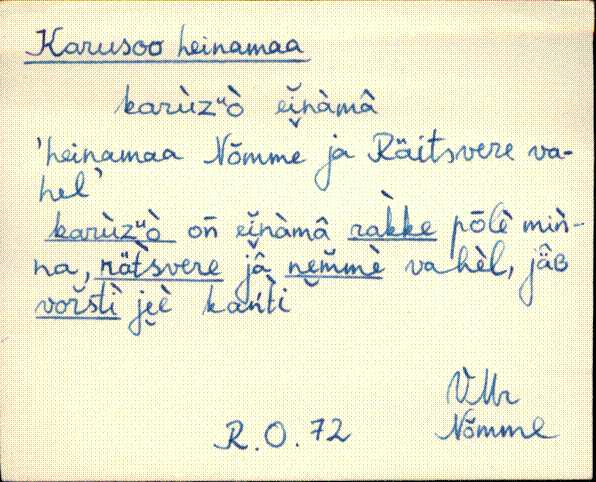 Karusoo heinamaa
karùzᵘò ei̯nàmâ
'heinamaa Nõmme ja Räitsvere va-
hel'
karùzᵘò on̄ ei̯nàmâ ràkke pōlè miǹ-
na, rät̀svere jâ nem̆mè vahèl, jäB
vor̆stì jeè kańti
VMr
R.O.72 Nõmme